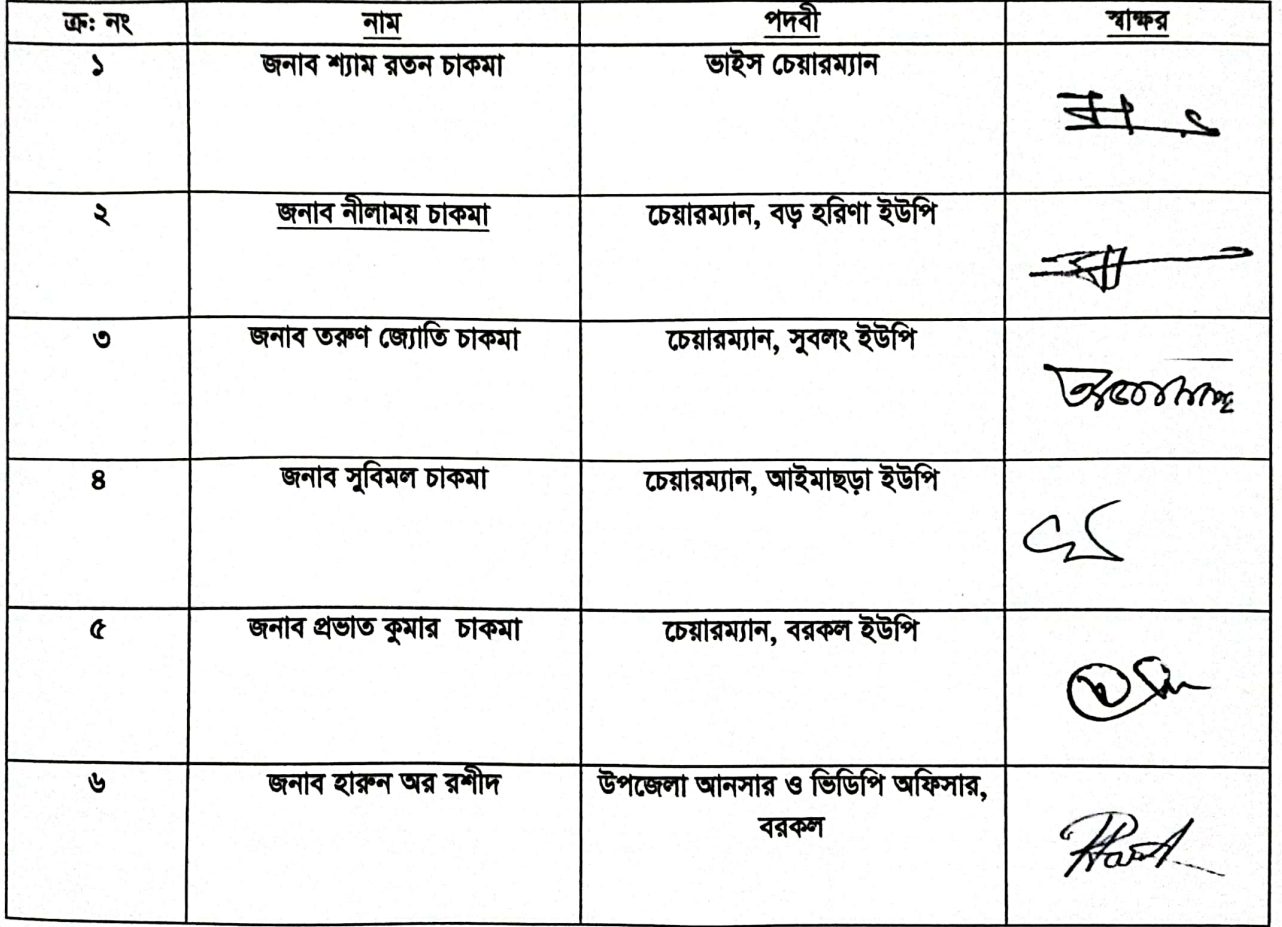 ক্র: নং নাম পদবী স্বাক্ষর
১ জনাব শ্যাম রতন চাকমা ভাইস চেয়ারম্যান
২ জনাব নীলাময় চাকমা চেয়ারম্যান, বড় হরিণা ইউপি
৩ জনাব তরুণ জ্যোতি চাকমা চেয়ারম্যান, সুবলং ইউপি
৪ জনাব সুবিমল চাকমা চেয়ারম্যান, আইমাছড়া ইউপি
৫ জনাব প্রভাত কুমার চাকমা চেয়ারম্যান, বরকল ইউপি
৬ জনাব হারুন অর রশীদ উপজেলা আনসার ও ভিডিপি অফিসার,
বরকল